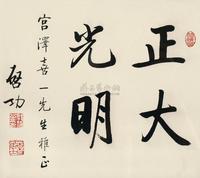 正大
光明
宫澤喜一先生雅正
启功